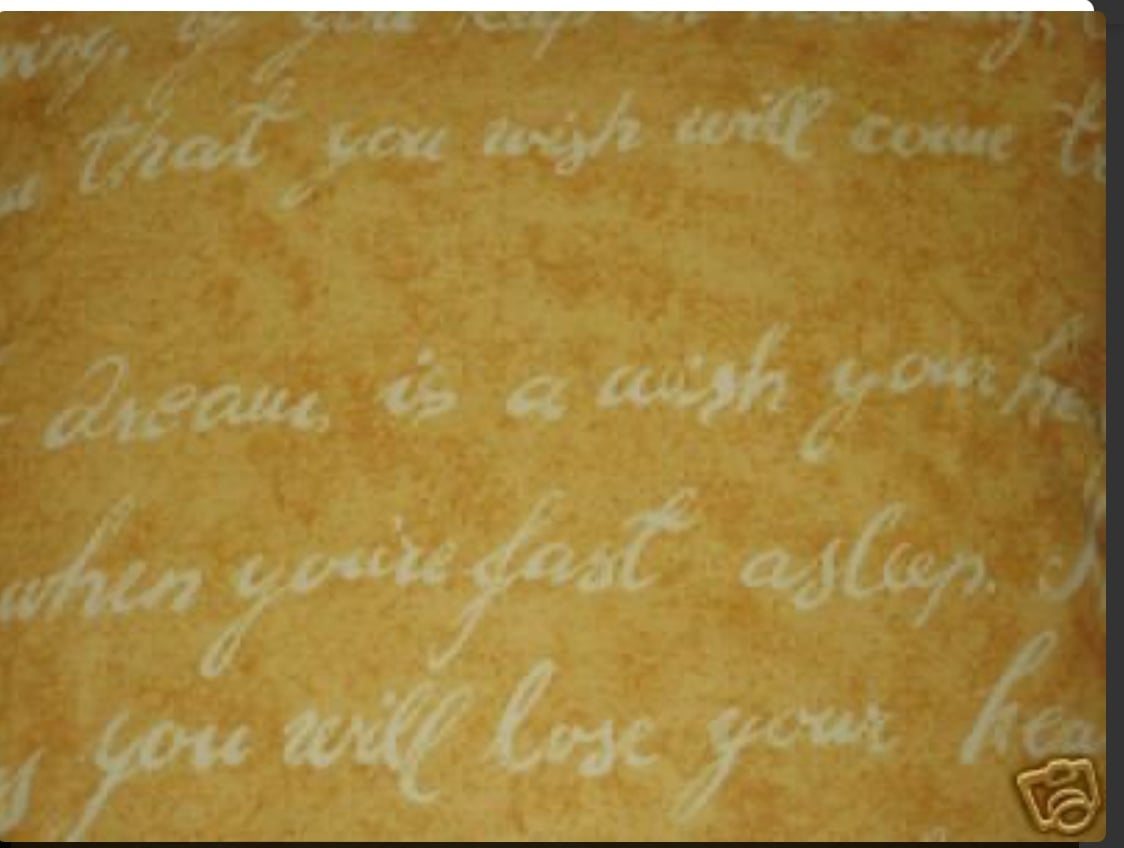 if you keep on
that you wish will come
dream is a wish your
when you're fast asleep.
you will lose your